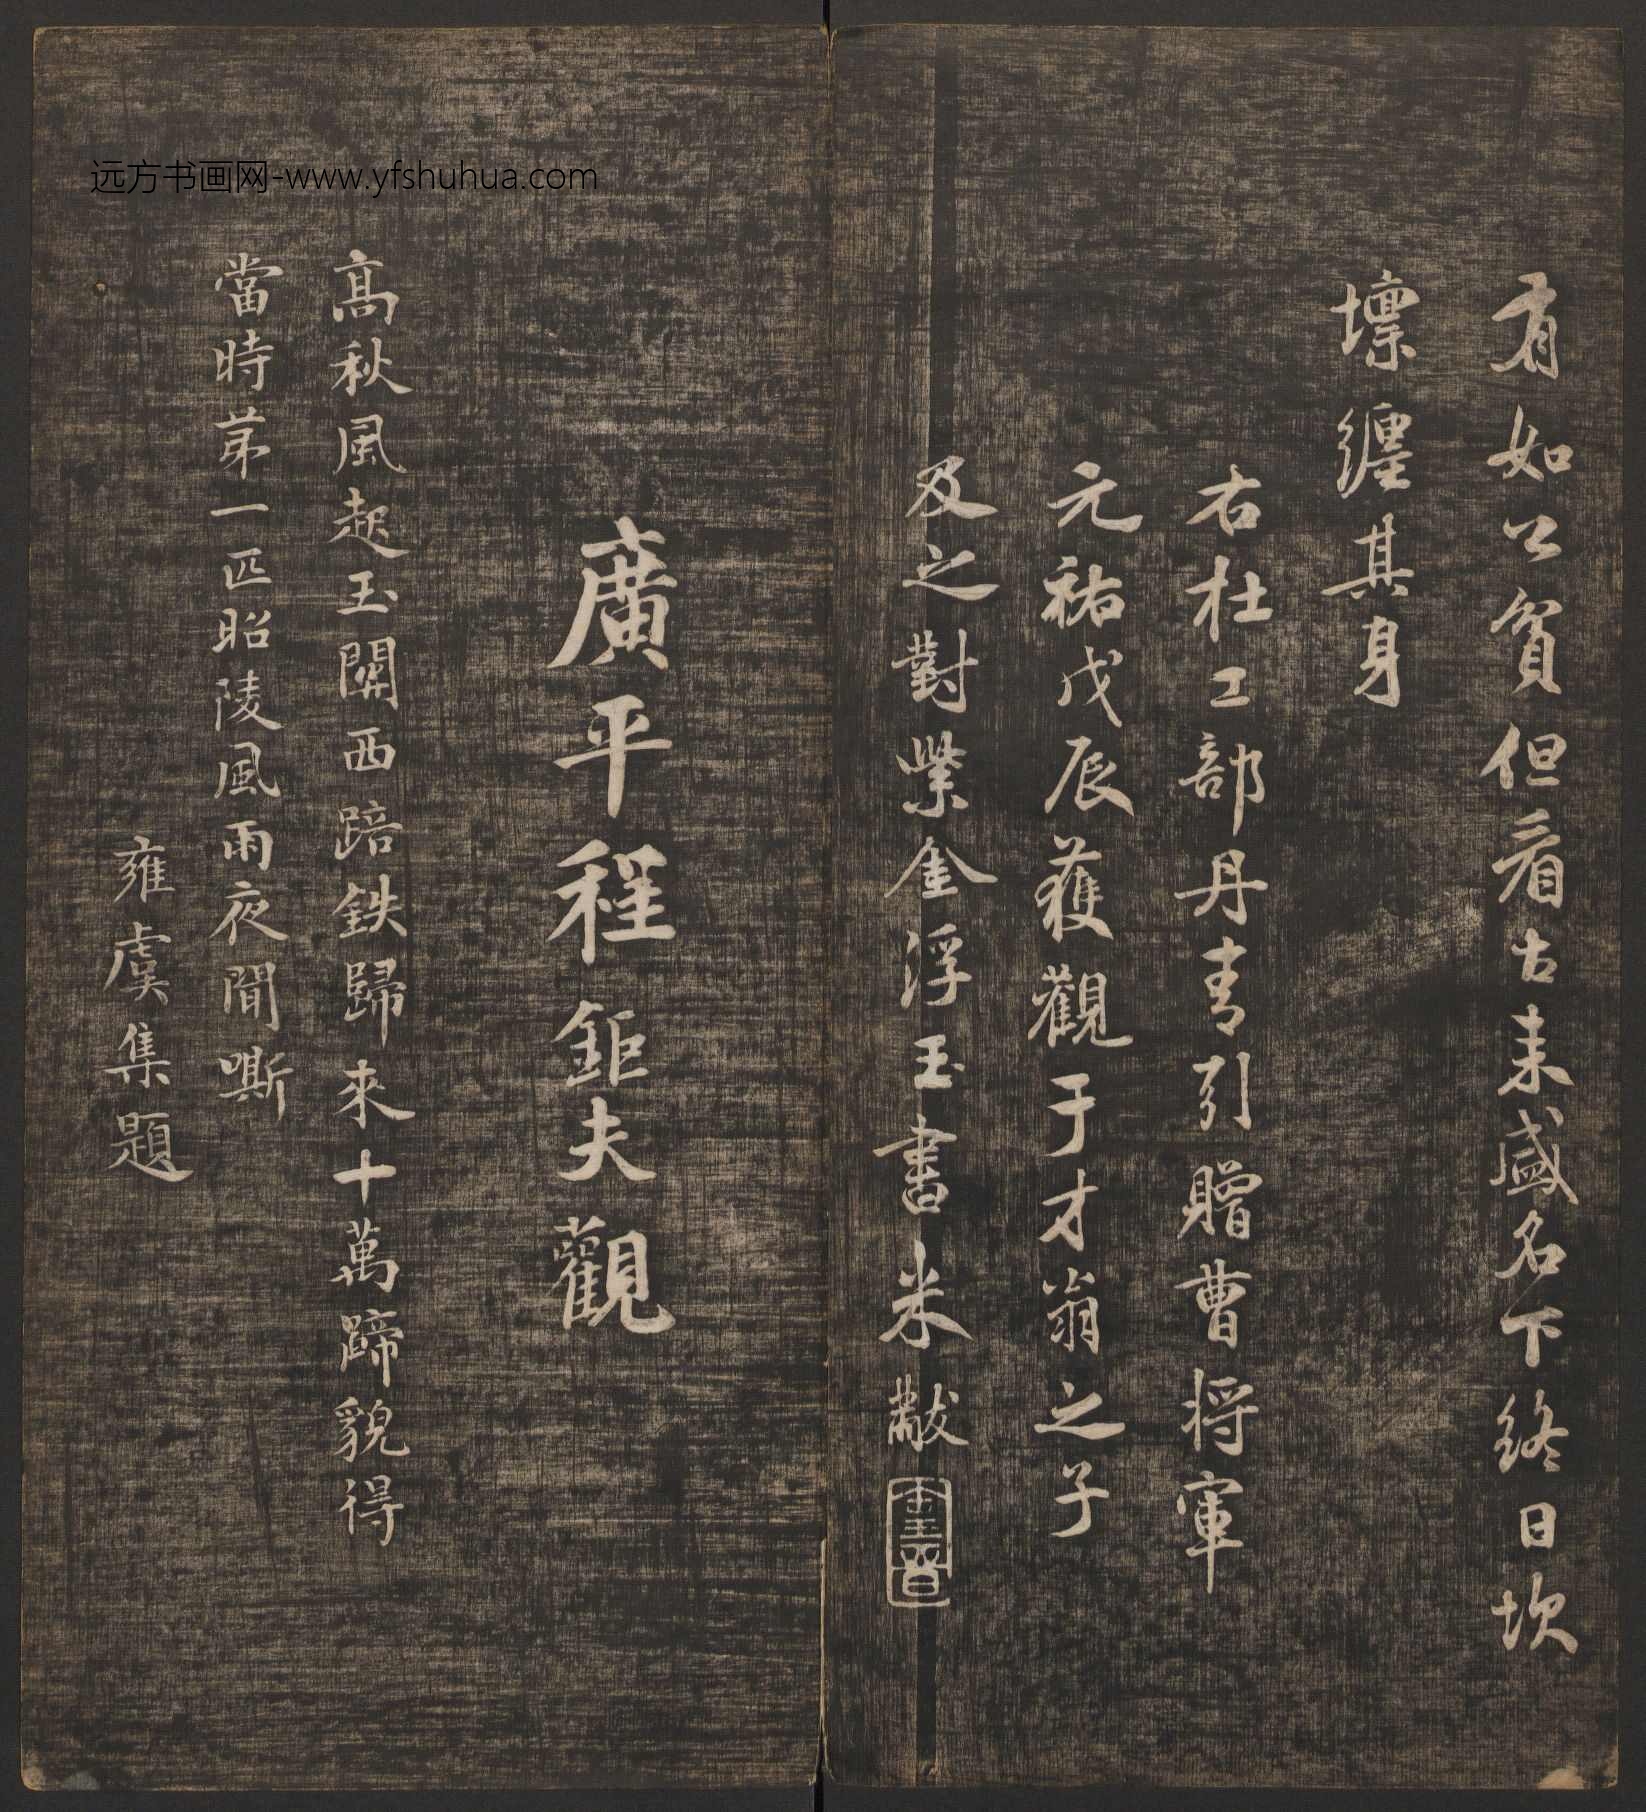 有如公貧但看古来盛名下終日坎
壈纏其身
右杜工部丹青引贈曹将軍
元祐戊辰獲觀于才翁之子
及之對紫金浮玉書米黻
廣平程鉅夫觀
高秋風起玉關西踣鉄歸來十萬蹄貌得
當時苐一匹昭陵風雨夜聞嘶
雍虞集題
远方书画网-www.yfshuhua.com